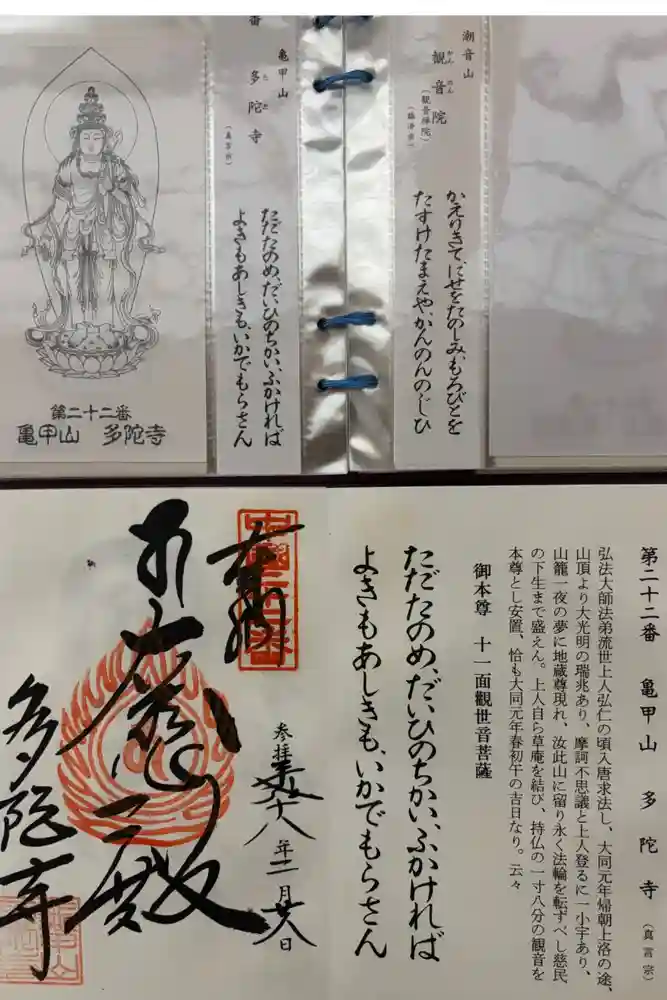 潮音山
観音院
かんのん
(観音禅院)
(臨済宗)
かえりきて、にせをたのしみ、もろびとを
たすけたまえや、かんのんのじひ
亀甲山
番 多陀寺
ただ
(真言宗)
ただたのめ、だいひのちかい、ふかければ
よきもあしきも、いかでもらさん
第二十二番
亀甲山 多陀寺
第二十二番 亀甲山 多陀寺 (真言宗)
弘法大師法弟流世上人弘仁の頃入唐求法し、大同元年帰朝上洛の途、
山頂より大光明の瑞兆あり、摩訶不思議と上人登るに一小宇あり、
山籠一夜の夢に地蔵尊現れ、汝此山に留り永く法輪を転ずべし慈民
の下生まで盛えん。上人自ら草庵を結び、持仏の一寸八分の観音を
本尊とし安置、恰も大同元年春初午の吉日なり。云々
御本尊 十一面觀世音菩薩
ただたのめ、だいひのちかい、ふかければ
よきもあしきも、いかでもらさん
奉拝
参拝 十八年二月廿八日
大悲殿
多陀寺
亀甲山